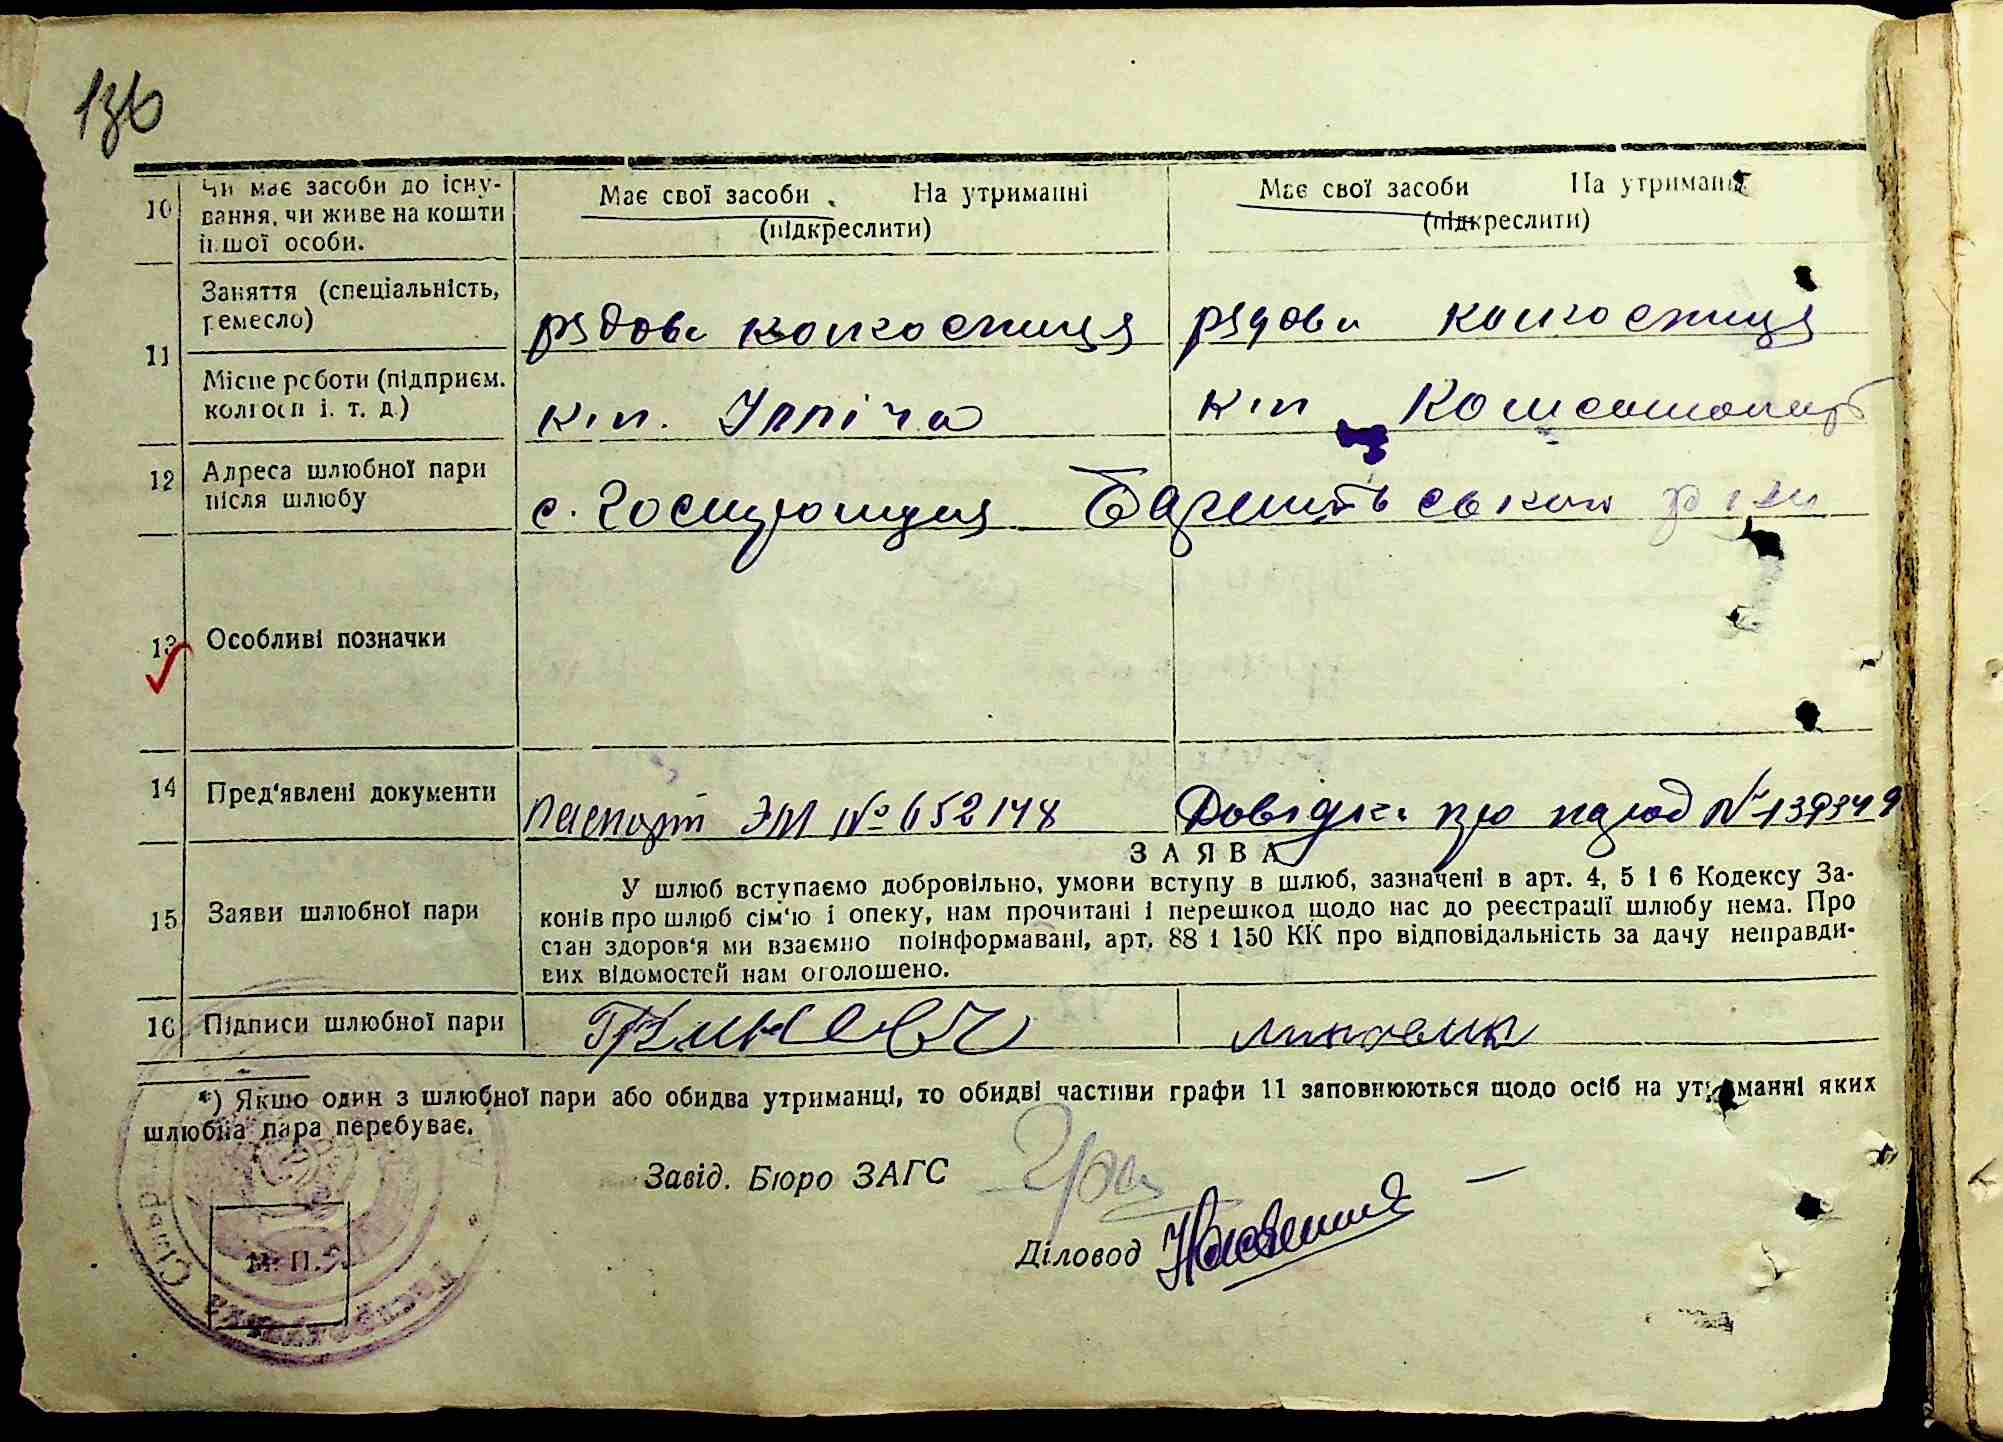 136
10 Чи має засоби до існу-
вання, чи живе на кошти
іншої особи.
Має свої засоби На утриманні
(підкреслити)
Має свої засоби На утриманні
(підкреслити)
11 Заняття (спеціальність,
ремесло)
рядова колгоспниця
рядова колгоспниця
Місце роботи (підприєм.
колгосп і. т. д.)
к-п. Ілліча
к-п Комсомолець
12 Адреса шлюбної пари
після шлюбу
с.
13 Особливі позначки
14 Пред'явлені документи
Паспорт ЭМ № 652148
Довідка про №139349
ЗАЯВА
15 Заяви шлюбної пари
У шлюб вступаємо добровільно, умови вступу в шлюб, зазначені в арт. 4, 5 і 6 Кодексу За-
конів про шлюб сім'ю і опеку, нам прочитані і перешкод щодо нас до реєстрації шлюбу нема. Про
стан здоров'я ми взаємно поінформавані, арт. 88 і 150 КК про відповідальність за дачу неправди-
вих відомостей нам оголошено.
16 Підписи шлюбної пари
Гриневич
*) Якщо один з шлюбної пари або обидва утриманці, то обидві частини графи 11 заповнюються щодо осіб на утриманні яких
шлюбна пара перебуває.
Завід. Бюро ЗАГС
Діловод
М. П.